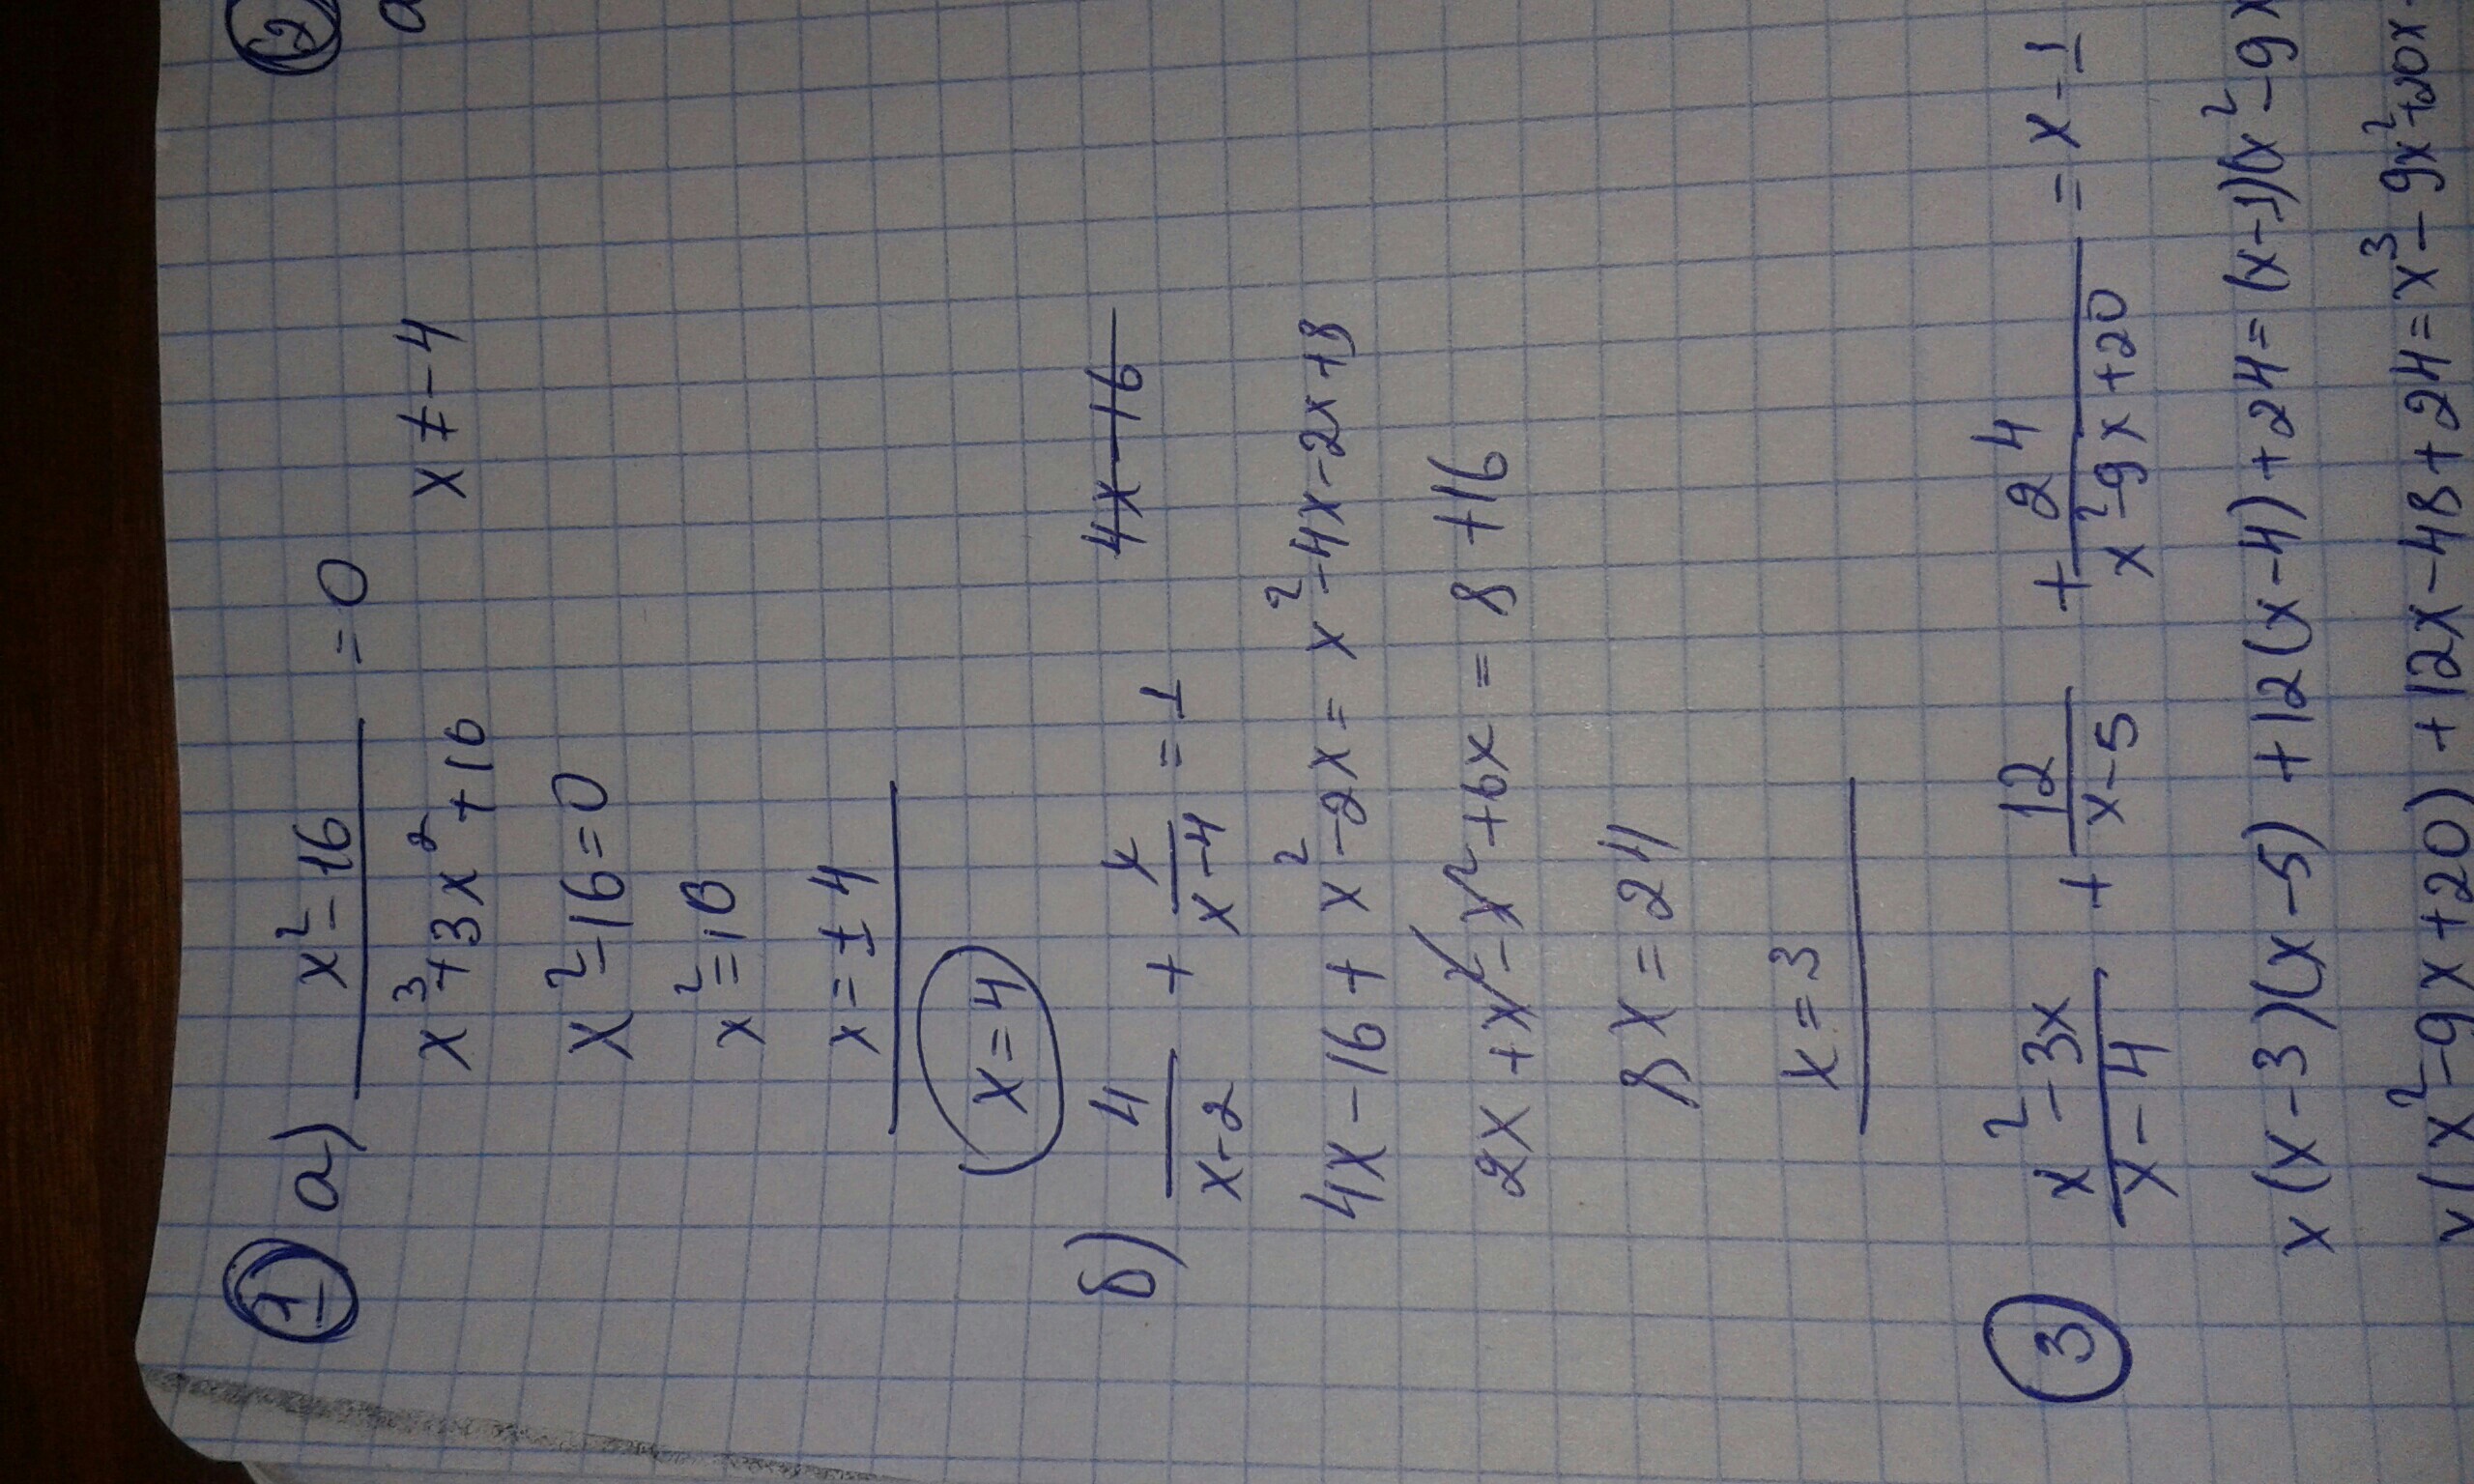 ① а) (x² - 16)/(x³ + 3x² + 16) = 0 x ≠ -4
x² - 16 = 0
x² = 16
x = ± 4
x = 4
б) 4/(x-2) + x/(x-4) = 1 ~~4x - 16~~
4x - 16 + x² - 2x = x² - 4x - 2x + 8
2x + x² - x² + 6x = 8 + 16
8x = 24
x = 3
③ (x² - 3x)/(x - 4) + 12/(x-5) + 24/(x² - 9x + 20) = x - 1
x(x - 3)(x - 5) + 12(x - 4) + 24 = (x - 1)(x² - 9x
x(x² - 9x + 20) + 12x - 48 + 24 = x³ - 9x² + 20x -
②
а